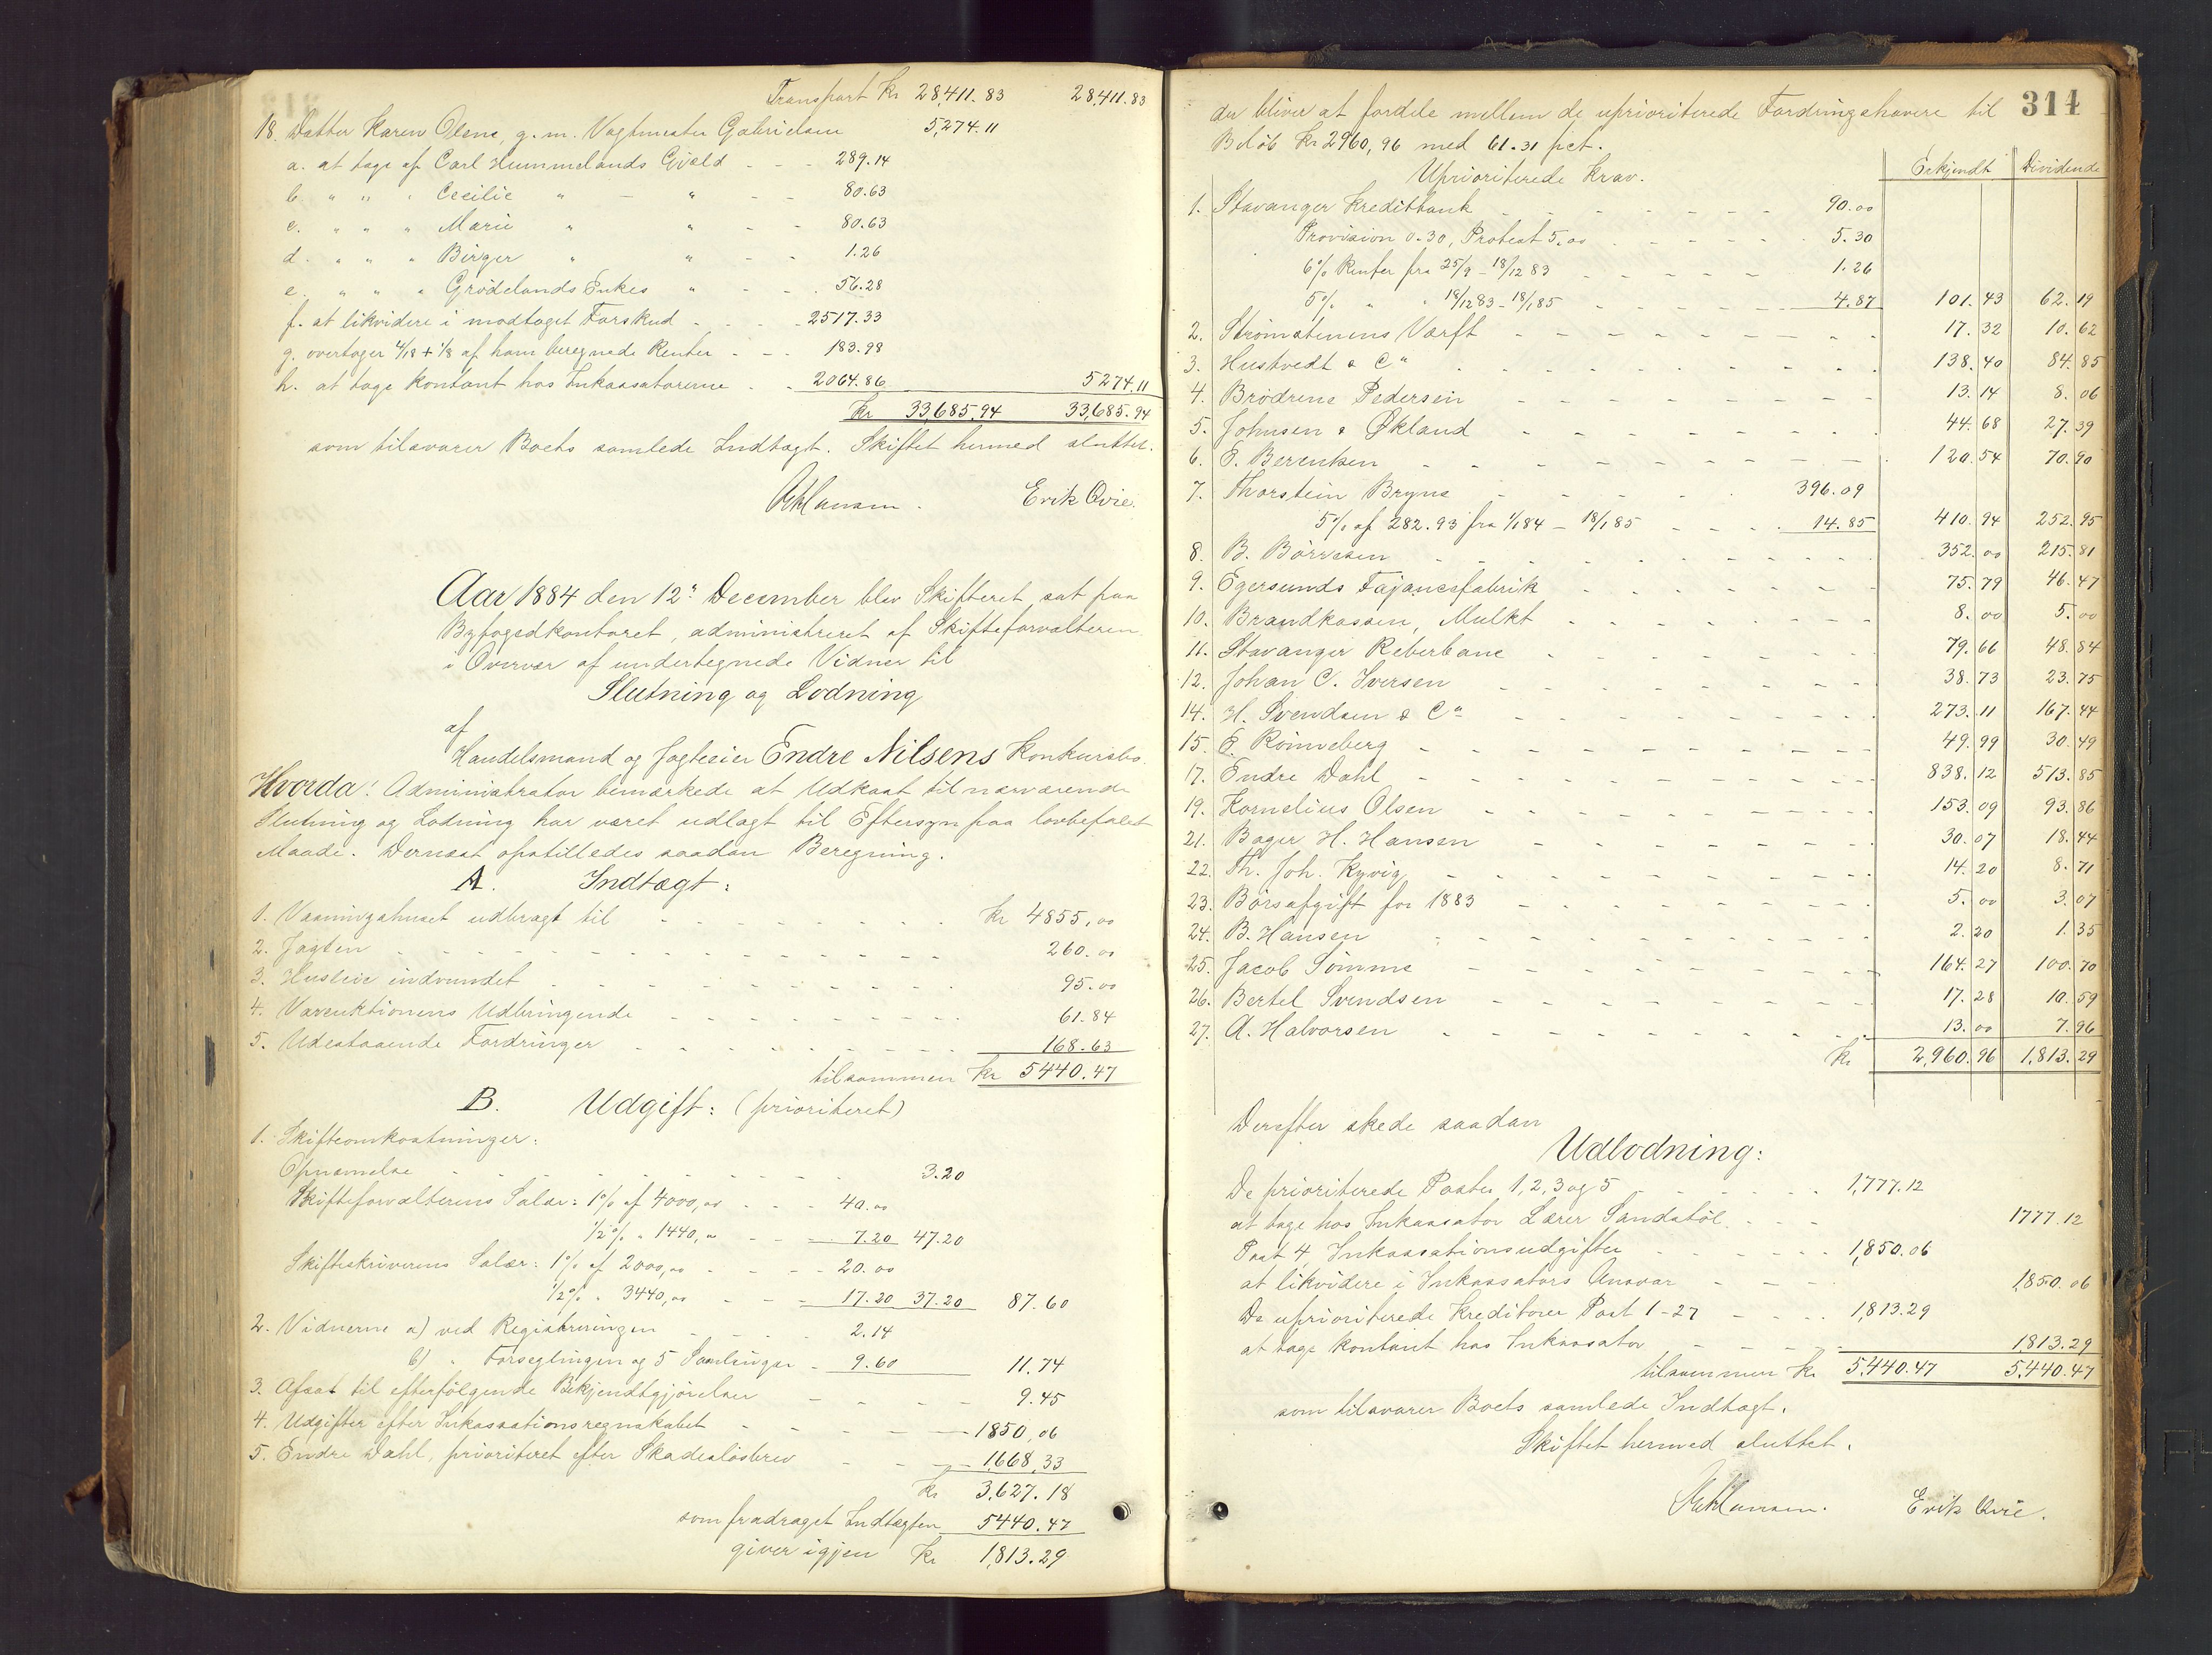 Transport Kr 28,411.83 28,411.83
18. Datter Karen Olene, g. m. Vagtmester Gabrielsen 5,274.11
a. at tage af Carl Hummelands Gjæld - - - 289.14
b. " " " Cecilie " — " - - 80.63
c. " " " Marie " " - - 80.63
d. " " " Birger " " - - 1.26
e. " " " Grødelands Enkes " - - 56.28
f. at likvidere i modtaget Forskud - - - 2517.33
g. overtager 4/18 + 1/8 af ham beregnede Renter - - - 183.98
h. at tage kontant hos Inkassatorerne - - 2064.86 5274.11
Kr 33,685.94 33,685.94
som tilsvarer Boets samlede Indtægt. Skiftet hermed sluttet.
Erik Qvie.
Aar 1884 den 12te December blev Skifteret sat paa
Byfogedkontoret, administreret af Skifteforvalteren
i Overvær af undertegnede Vidner til
Slutning og Lodning
af
Handelsmand og Jagteeier Endre Nilsens Konkursbo.
Hvorda: Administrator bemærkede at Udkast til nærværende
Slutning og Lodning har været udlagt til Eftersyn paa lovbefalet
Maade. Dernæst opstilledes saadan Beregning.
A. Indtægt:
1. Vaaningshuset udbragt til - - - - - Kr 4855,00
2. Jagten - - - - - - - - 260.00
3. Husleie indvundet - - - - - - 95.00
4. Vareauktionens Udbringende - - - - - 61.84
5. Udestaaende Fordringer - - - - - 168.63
tilsammen Kr 5440.47
B. Udgift: (prioriteret)
1. Skifteomkostninger:
Opnævnelse - - - - - - - 3.20
Skifteforvalterens Salær: 1% af 4000,00 - - - 40.00
1/2% " 1440,00 - - - 7.20 47.20
Skifteskriverens Salær: 1% af 2000,00 - - - 20.00
1/2% " 3440,00 - - - 17.20 37.20 87.60
2. Vidnerne a) ved Registreringen - - - 2.14
b) " Forseglingen og 5 Samlinger - 9.60 11.74
3. Afsat til efterfølgende Bekjendtgjørelser - - - - 9.45
4. Udgifter efter Inkassationsregnskabet - - - - 1850,06
5. Endre Dahl, prioriteret efter Skadesløsbrev - - - 1668,33
Kr 3,627.18
som fradraget Indtægten 5440.47
giver igjen Kr 1,813.29
314
der bliver at fordele mellem de uprioriterede Fordringshavere til
Beløb Kr 2960,96 med 61.31 pct.
Uprioriterede Krav. Erkjendt Dividende
1. Stavanger Kreditbank - - - - - 90.00
Provision 0.30, Protest 5.00 - - - - 5.30
6% Renter fra 25/9 - 18/12 83 - - - - 1.26
5% " " 18/12 83 - 18/1 85 - - - - 4.87 101.43 62.19
2. Strømsteinens Værft - - - - - - 17.32 10.62
3. Hustvedt & Co - - - - - - 138.40 84.85
4. Brødrene Pedersen - - - - - - 13.14 8.06
5. Johnsen & Økland - - - - - - 44.68 27.39
6. E. Berentsen - - - - - - 120.54 70.90
7. Thorstein Bryne - - - - 396.09
5% af 282.93 fra 1/1 84 - 18/1 85 - - - 14.85 410.94 252.95
8. B. Børresen - - - - - - 352.00 215.81
9. Egersunds Fajancefabrik - - - - - 75.79 46.47
10. Brandkassen, Mulkt - - - - - 8.00 5.00
11. Stavanger Reberbane - - - - - 79.66 48.84
12. Johan C. Iversen - - - - - 38.73 23.75
14. H. Svendsen & Co - - - - - 273.11 167.44
15. E. Rönneberg - - - - - 49.99 30.49
17. Endre Dahl - - - - - 838.12 513.85
19. Kornelius Olsen - - - - - 153.09 93.86
21. Bager H. Hansen - - - - - 30.07 18.44
22. Th. Joh. Kyvig - - - - - 14.20 8.71
23. Børsafgift for 1883 - - - - - 5.00 3.07
24. B. Hansen - - - - - 2.20 1.35
25. Jacob Sømme - - - - - 164.27 100.70
26. Bertel Svendsen - - - - - 17.28 10.59
27. A. Halvorsen - - - - - 13.00 7.96
Kr 2,960.96 1,813.29
Derefter skede saadan
Udlodning:
De prioriterede Poster 1, 2, 3 og 5 - - - - 1,777.12
at tage hos Inkassator Lærer Sandstøl - - - 1777.12
Post 4, Inkassationsudgifter - - - - 1,850.06
at likvidere i Inkassators Ansvar - - - 1,850.06
De uprioriterede Kreditorer Post 1-27 - - - 1,813.29
at tage kontant hos Inkassator - - - 1,813.29
tilsammen Kr 5,440.47 5,440.47
som tilsvarer Boets samlede Indtægt.
Skiftet hermed sluttet.
Erik Qvie.